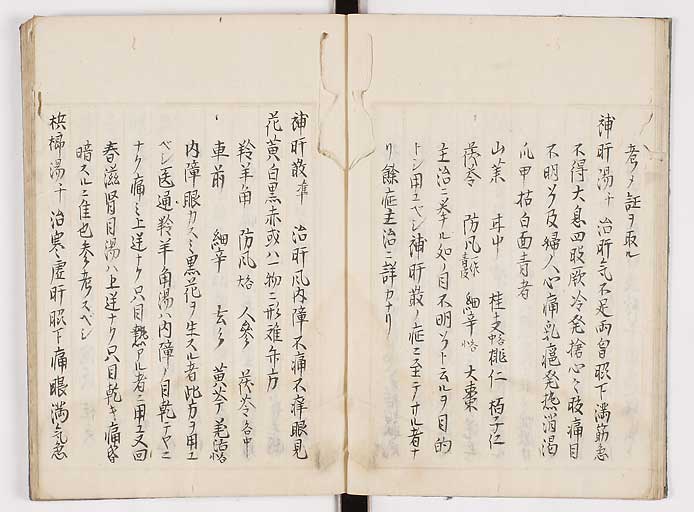 考ノ証ヲ取ル
補肝湯千 治肝気不足両脇下満筋急
不得大息四肢厥冷発搶心腹痛目
不明及婦人心痛乳癰発熱消渇
爪甲枯白面青者
山茱 桂支 桃仁 栢子仁
茯苓 防風 細辛 大棗
主治ニ挙ル如ク目不明ト云ルヲ目的
トシ用ユベシ補肝散ノ症ニ至テナル者ナ
リ餘症主治ニ詳カナリ
補肝散準 治肝風内障不痛不痒眼見
花黄白黒赤或ハ一物ニ形難弁方
羚羊角 防風 人参 茯苓
車前 細辛 玄参 黄芩 羌活
内障眼カスミ黒花ヲ生スル者此方ヲ用ユ
ベシ医通羚羊角湯ハ内障ノ目乾テ
ナク痛ミ上逆ナク只目熱アル者ニ用ユ又回
春滋腎明目湯ハ上逆ナク只目乾キ痛昏
暗スルニ佳也参考スベシ
檳榔湯千 治寒虚肝脇下痛眼満気急